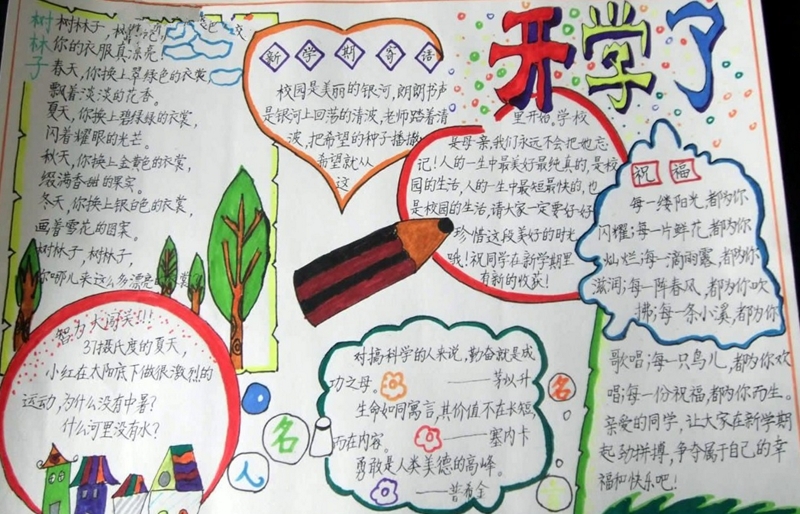 开学了
树林子
树林子,树林子,
你的衣服真漂亮!
春天,你换上翠绿色的衣裳,
飘着淡淡的花香。
夏天,你换上碧绿绿的衣裳,
闪着耀眼的光芒。
秋天,你换上金黄色的衣裳,
缀满香甜的果实。
冬天,你换上银白色的衣裳,
画着雪花的图案。
树林子,树林子,
你哪儿来这么多漂亮
新学期寄语
校园是美丽的银河,朗朗书声
是银河上回荡的清波,老师踏着清
波,把希望的种子播撒
希望就从
这
里开始,学校
是母亲,我们永远不会把他忘
记!人的一生中最美好最纯真的,是校
园的生活,人的一生中最短最快的,也
是校园的生活,请大家一定要好好
珍惜这段美好的时光
哦!祝同学在新学期里
有新的收获!
祝福
每一缕阳光,都为你
闪耀;每一片鲜花,都为你
灿烂;每一滴雨露,都为你
滋润;每一阵春风,都为你吹
拂;每一条小溪,都为你
歌唱;每一只鸟儿,都为你欢
唱;每一份祝福,都为你而生。
亲爱的同学,让大家在新学期
起劲拼搏,争夺属于自己的幸
福和快乐吧!
智力大闯关!!!
37摄氏度的夏天,
小红在太阳底下做很激烈的
运动,为什么没有中暑?
什么河里没有水?
人名
名言
对搞科学的人来说,勤奋就是成
功之母。——茅以升
生命如同寓言,其价值不在长短,
而在内容。——塞内卡
勇敢是人类美德的高峰。
——普希金